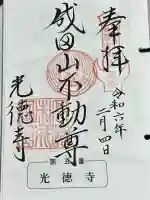 奉拝
令和六年
二月四日
成田山不動尊
光徳寺
第五番
光徳寺